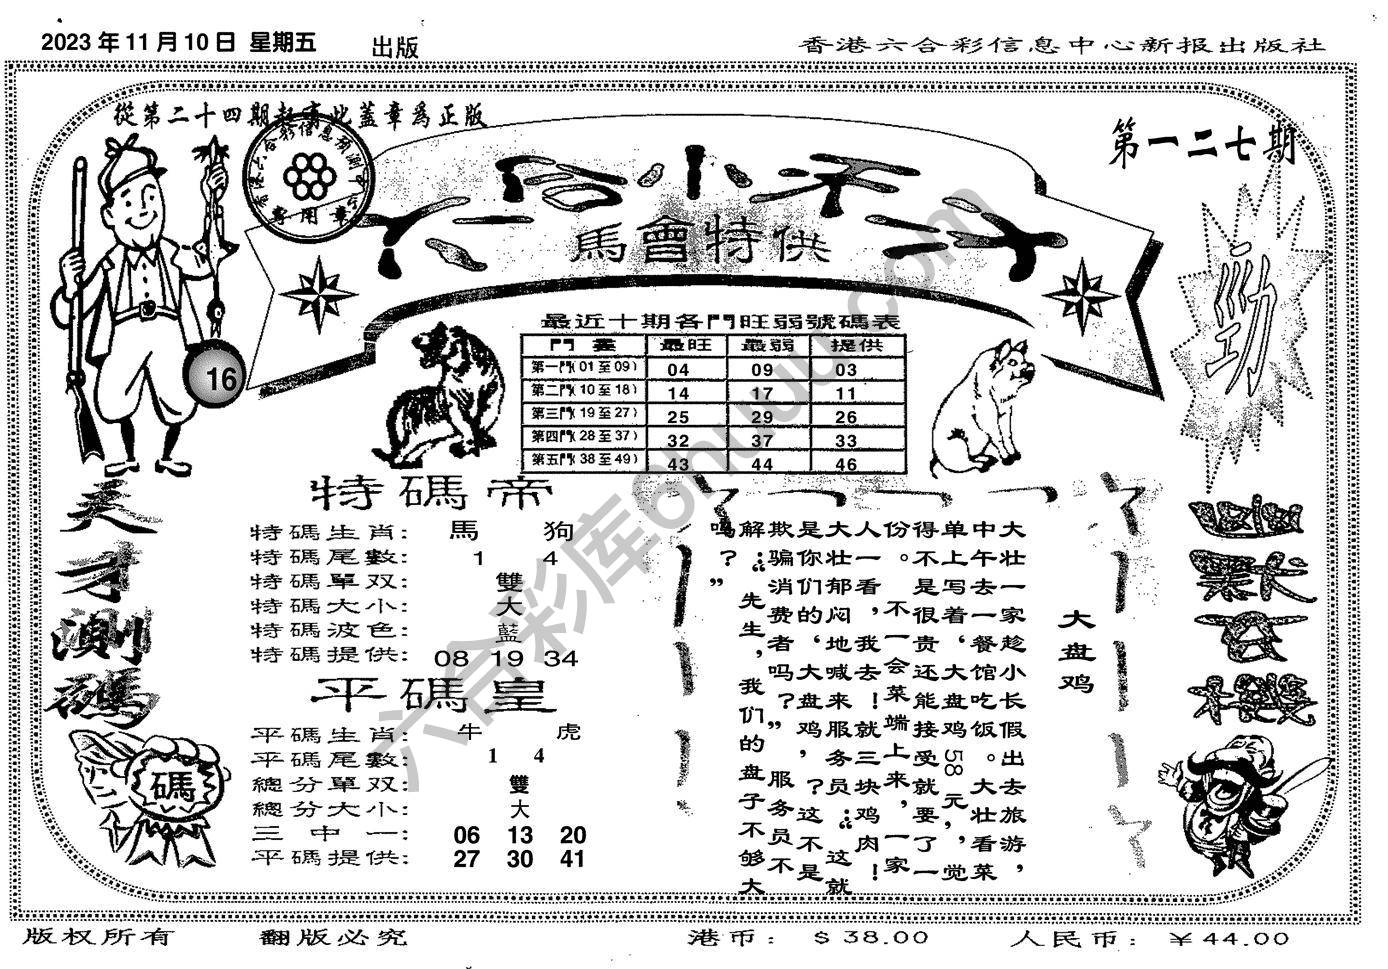 2023年11月10日 星期五 出版
香港六合彩信息中心新报出版社
從第二十四期起寄此蓋章爲正版
香港六合彩信息預測中心
專用章
第一二七期
六合小天才
馬會特供
勁
16
最近十期各門旺弱號碼表
門 最旺 最弱 提供
第一門(01至09) 04 09 03
第二門(10至18) 14 17 11
第三門(19至27) 25 29 26
第四門(28至37) 32 37 33
第五門(38至49) 43 44 46
天才測碼
碼
特碼帝
特碼生肖: 馬 狗
特碼尾數: 1 4
特碼單双: 雙
特碼大小: 大
特碼波色: 藍
特碼提供: 08 19 34
平碼皇
平碼生肖: 牛 虎
平碼尾數: 1 4
總分單双: 雙
總分大小: 大
三中一: 06 13 20
平碼提供: 27 30 41
大盘鸡
大壮一家趁小长假出去旅游，
中午去一餐馆吃饭。大壮看菜
单上写着‘大盘鸡58元，觉
得不是很贵还能接受就要了一
份。不一会菜端上来，一家
人一看，我去！就三块鸡肉！
大壮郁闷地喊来服务员：“这就
是你们的‘大盘鸡，？这不是
欺骗消费者吗？”服务员不
解：“先生，我们的盘子不够大
吗？”
六合彩库6huuu.com
版权所有 翻版必究 港币: $38.00 人民币: ￥44.00